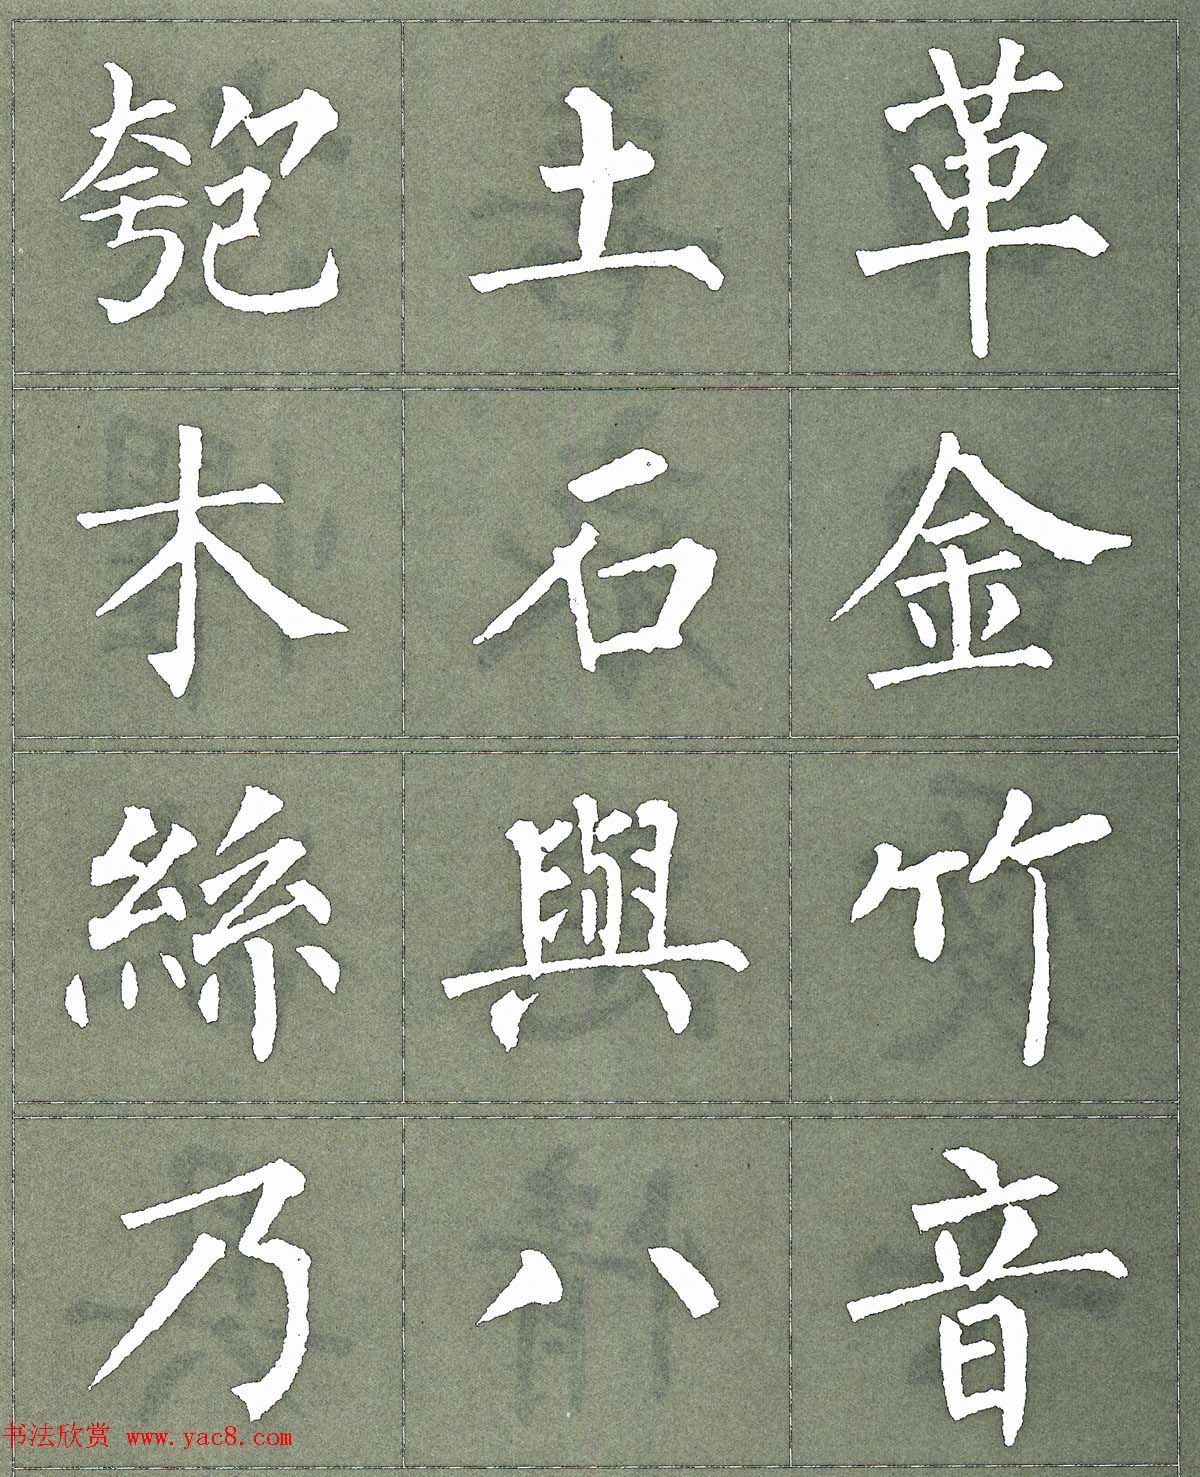 匏土革
木石金
絲與竹
乃八音
书法欣赏 www.yac8.com